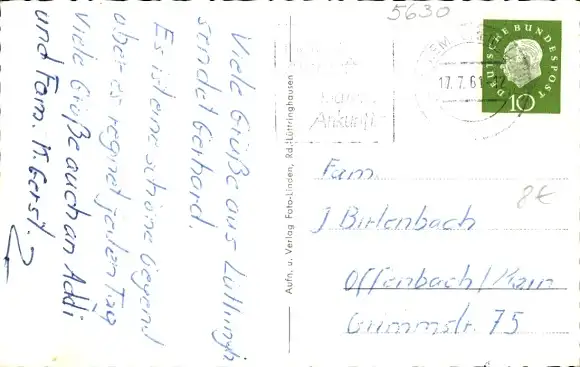 Viele Grüße aus Lüttringh.
sendet Gerhard.
Es ist eine schöne Gegend
aber es regnet jeden Tag
Viele Grüße auch an Addi
und Fam. K. Gerst.
Aufn. u. Verlag Foto-Linden, Rd.-Lüttringhausen
5630
17.7.61
Ankunft
DEUTSCHE BUNDESPOST
10
Fam.
J Birlenbach
8€
Offenbach/Main
Grimmstr. 75